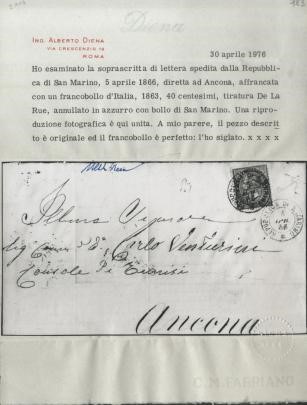 Diena
ING. ALBERTO DIENA
VIA CRESCENZIO 19
ROMA
30 aprile 1976
Ho esaminato la soprascritta di lettera spedita dalla Repubbli-
ca di San Marino, 5 aprile 1866, diretta ad Ancona, affrancata
con un francobollo d'Italia, 1863, 40 centesimi, tiratura De La
Rue, annullato in azzurro con bollo di San Marino. Una ripro-
duzione fotografica è qui unita. A mio parere, il pezzo descrit
to è originale ed il francobollo è perfetto: l'ho siglato. x x x x
Carlo
Console
Ancona
C.M. FABRIANO